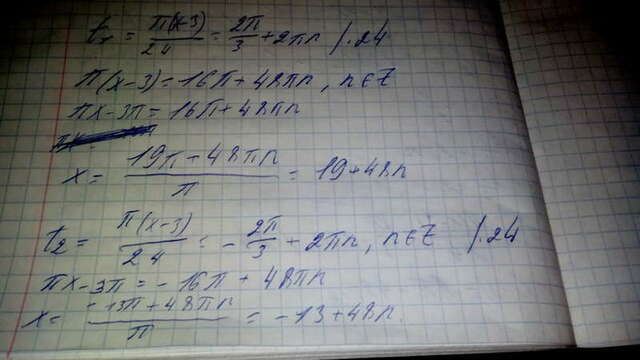 t₁ = π(x-3)/24 = 2π/3 + 2πn /·24
π(x-3) = 16π + 48πn, n∈Z
πx - 3π = 16π + 48πn
x = (19π + 48πn)/π = 19 + 48n
t₂ = π(x-3)/24 = - 2π/3 + 2πn, n∈Z /·24
πx - 3π = - 16π + 48πn
x = (-13π + 48πn)/π = -13 + 48n